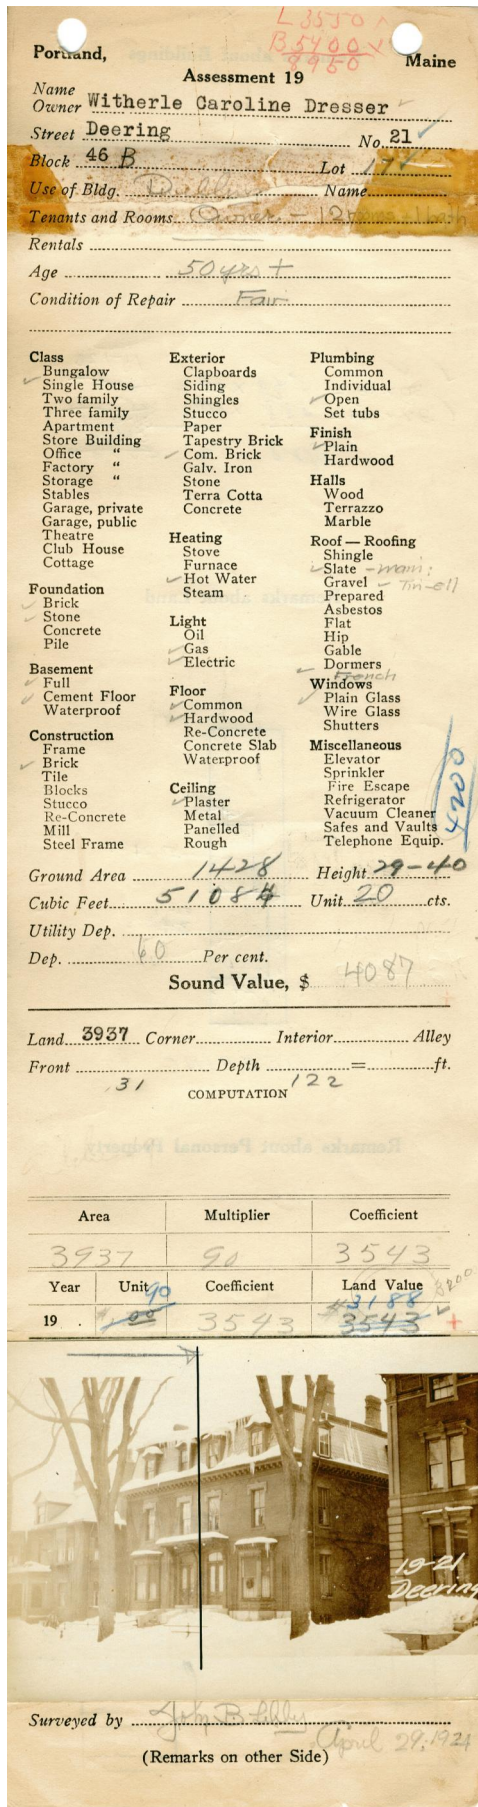 L 3550
B 5400 x
8950
Portland, Maine
Assessment 19
Name
Owner Witherle Caroline Dresser
Street Deering No. 21
Block 46 B Lot 17
Use of Bldg. Dwelling Name
Tenants and Rooms Owner - 12 rooms - 1 bath
Rentals
Age 50 yrs +
Condition of Repair Fair
Class
Bungalow
Single House
Two family
Three family
Apartment
Store Building
Office "
Factory "
Storage "
Stables
Garage, private
Garage, public
Theatre
Club House
Cottage
Foundation
Brick
Stone
Concrete
Pile
Basement
Full
Cement Floor
Waterproof
Construction
Frame
Brick
Tile
Blocks
Stucco
Re-Concrete
Mill
Steel Frame
Exterior
Clapboards
Siding
Shingles
Stucco
Paper
Tapestry Brick
Com. Brick
Galv. Iron
Stone
Terra Cotta
Concrete
Heating
Stove
Furnace
Hot Water
Steam
Light
Oil
Gas
Electric
Floor
Common
Hardwood
Re-Concrete
Concrete Slab
Waterproof
Ceiling
Plaster
Metal
Panelled
Rough
Plumbing
Common
Individual
Open
Set tubs
Finish
Plain
Hardwood
Halls
Wood
Terrazzo
Marble
Roof — Roofing
Shingle
Slate - main:
Gravel Tin-ell
Prepared
Asbestos
Flat
Hip
Gable
Dormers
French
Windows
Plain Glass
Wire Glass
Shutters
Miscellaneous
Elevator
Sprinkler
Fire Escape
Refrigerator
Vacuum Cleaner
Safes and Vaults
Telephone Equip.
4200
Ground Area 1428 Height 29-40
Cubic Feet 51084 Unit 20 cts.
Utility Dep.
Dep. 60 Per cent.
Sound Value, $ 4087
Land 3937 Corner Interior Alley
Front Depth = ft.
31 122
COMPUTATION
Area Multiplier Coefficient
3937 90 3543
Year Unit Coefficient Land Value
90 3188 3200
19 . 3543 3543 +
19-21
Deering
Surveyed by John B Libby
April 29, 1924
(Remarks on other Side)